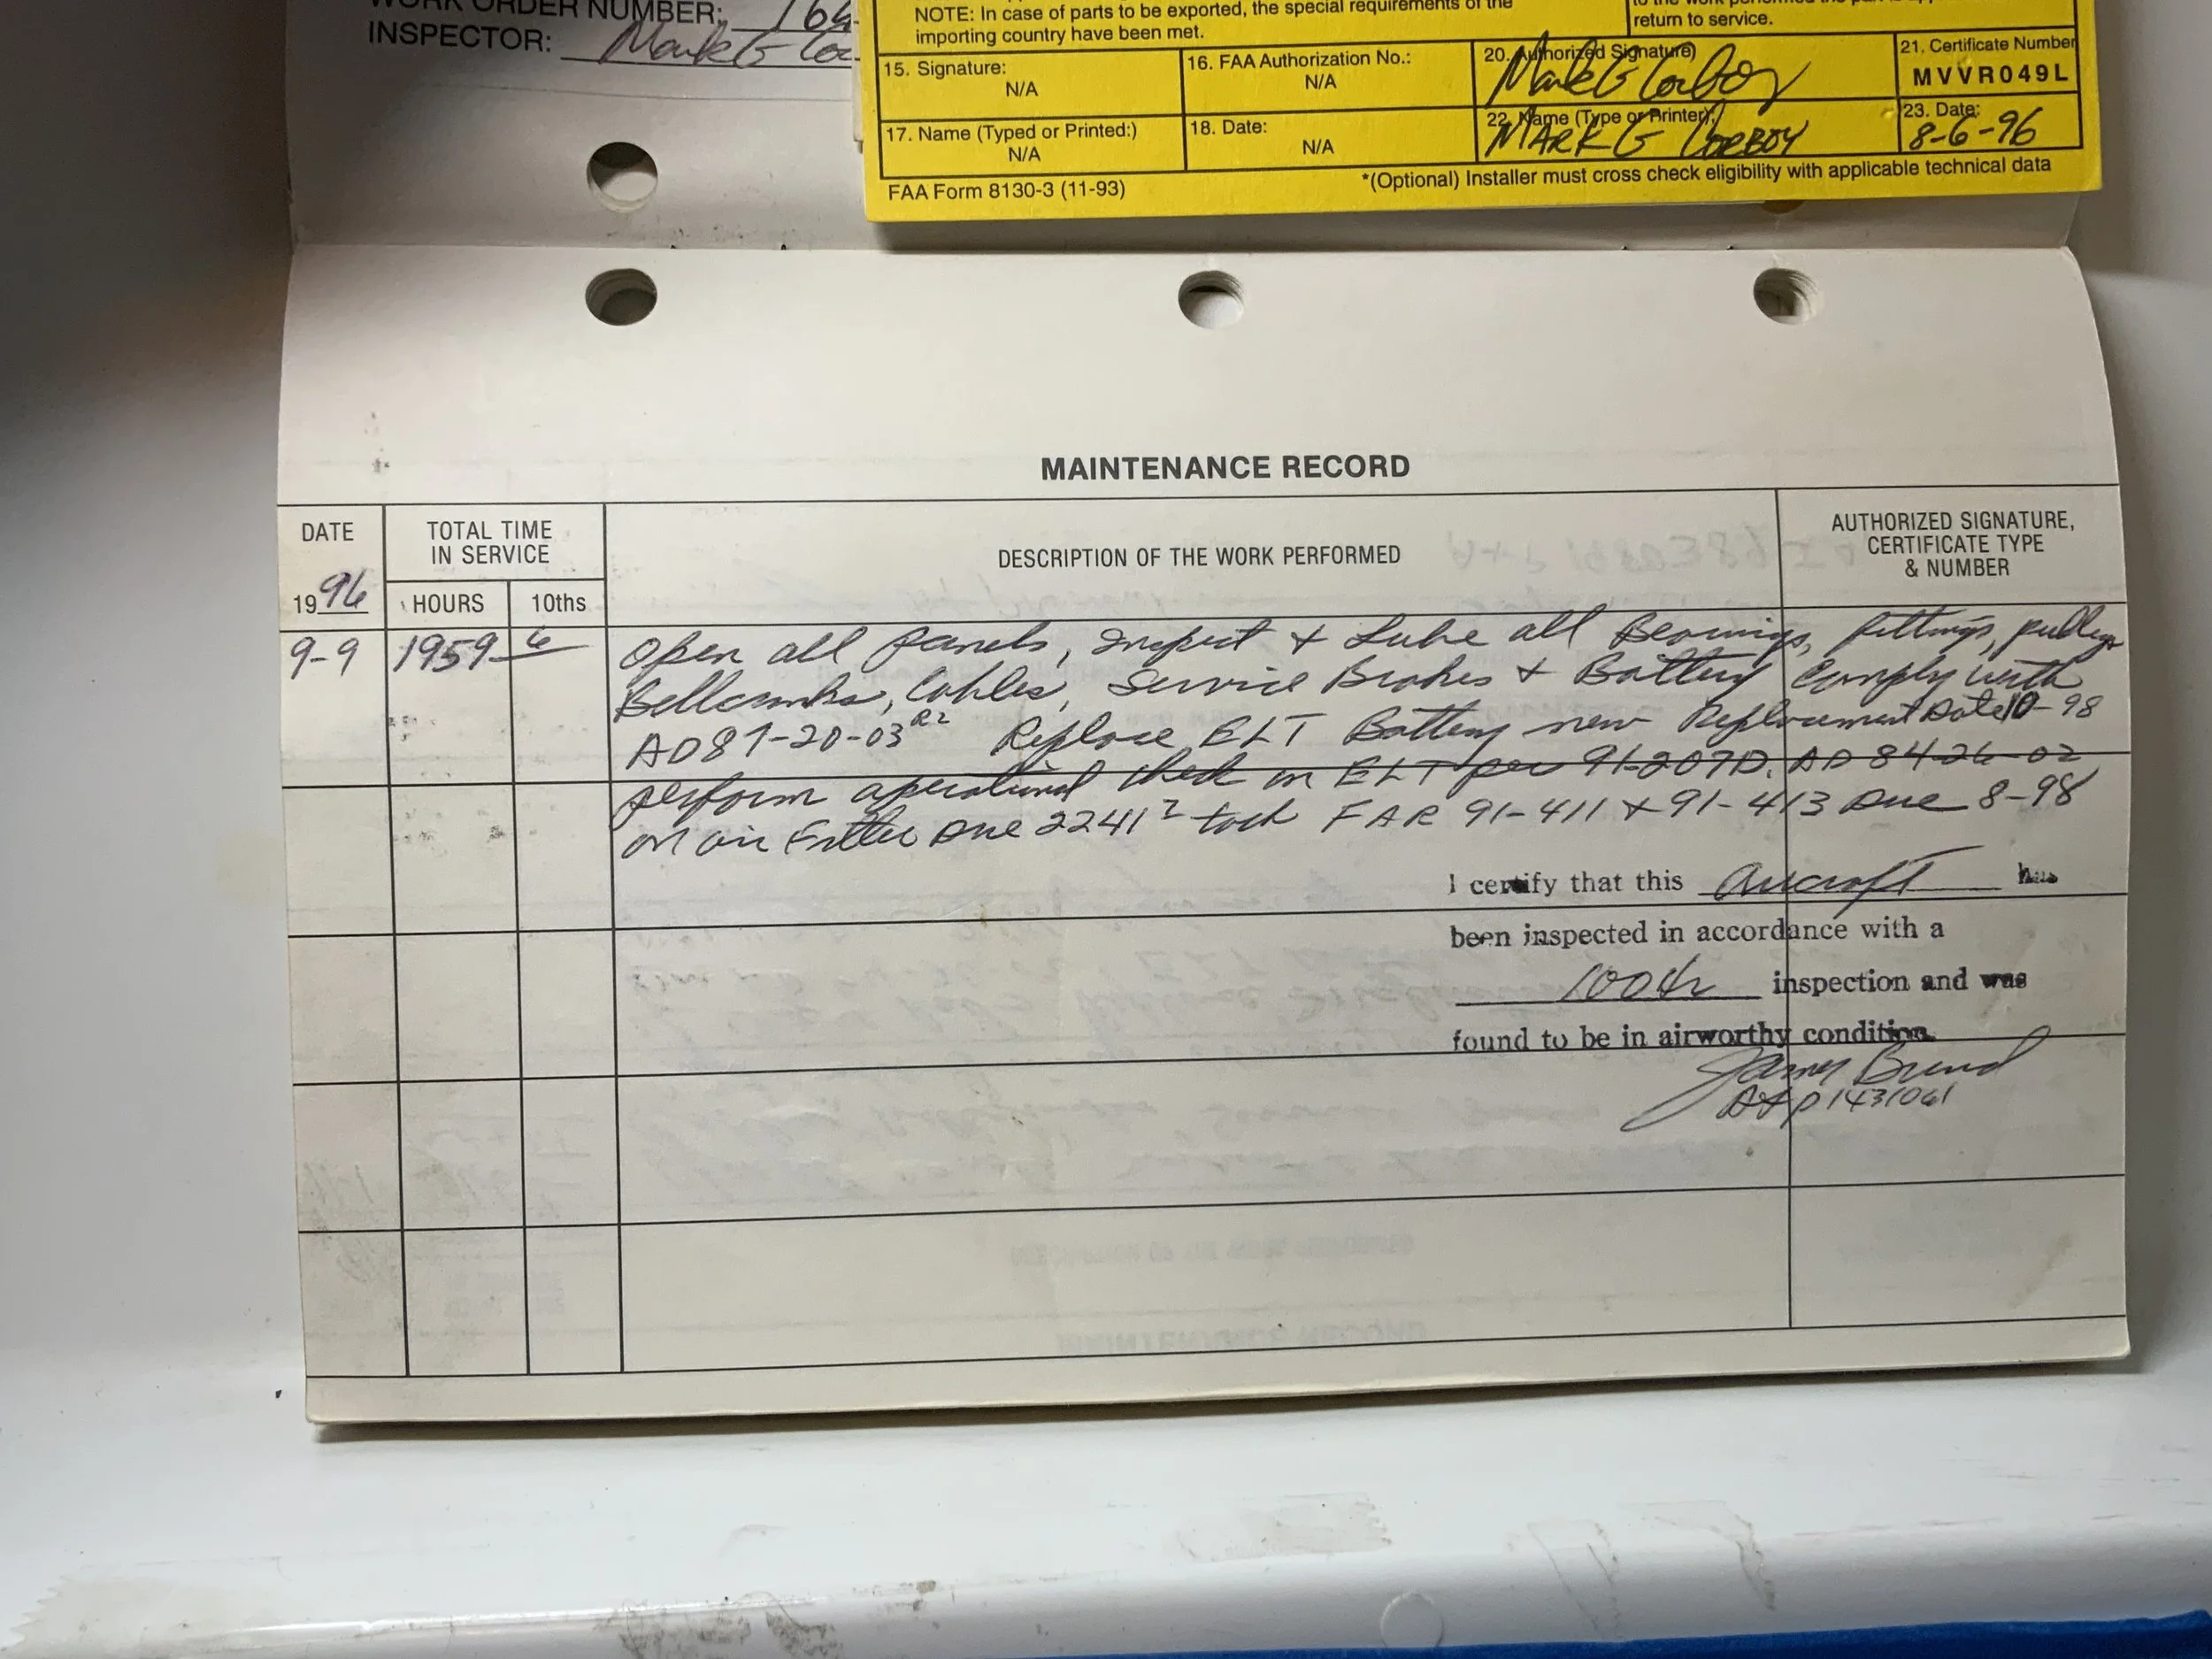 WORK ORDER NUMBER: 164
INSPECTOR: Mark G Co
NOTE: In case of parts to be exported, the special requirements of the
importing country have been met.
return to service.
15. Signature:
N/A
16. FAA Authorization No.:
N/A
20. Authorized Signature)
Mark G Corboy
21. Certificate Number
MVVR049L
17. Name (Typed or Printed:)
N/A
18. Date:
N/A
22. Name (Type or Printer):
MARK G CORBOY
23. Date:
8-6-96
FAA Form 8130-3 (11-93)
*(Optional) Installer must cross check eligibility with applicable technical data
MAINTENANCE RECORD
DATE
1996
TOTAL TIME
IN SERVICE
HOURS
10ths
DESCRIPTION OF THE WORK PERFORMED
AUTHORIZED SIGNATURE,
CERTIFICATE TYPE
& NUMBER
9-9 1959 6 Open all panels, Inspect + Lube all Bearings, fittings, pulleys
Bellcranks, Cables, Service Brakes + Battery Comply with
AD87-20-03 R2 Replace ELT Battery new Replacement Date 10-98
perform operational check on ELT per 91-207D. AD 84-26-02
on air Filter Due 2241 2 tach FAR 91-411 + 91-413 Due 8-98
I certify that this Aircraft has
been inspected in accordance with a
100 hr inspection and was
found to be in airworthy condition.
James
A+P 1431061